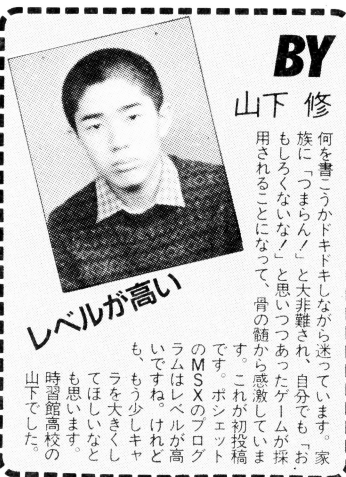 BY
山下 修
レベルが高い
何を書こうかドキドキしながら迷っています。家
族に「つまらん!」と大非難され、自分でも「お
もしろくないな!」と思いつつあったゲームが採
用されることになって、骨の髄から感激していま
す。これが初投稿
です。ポシェット
のMSXのプログ
ラムはレベルが高
いですね。けれど
も、もう少しキャ
ラを大きくし
てほしいなと
も思います。
時習館高校の
山下でした。